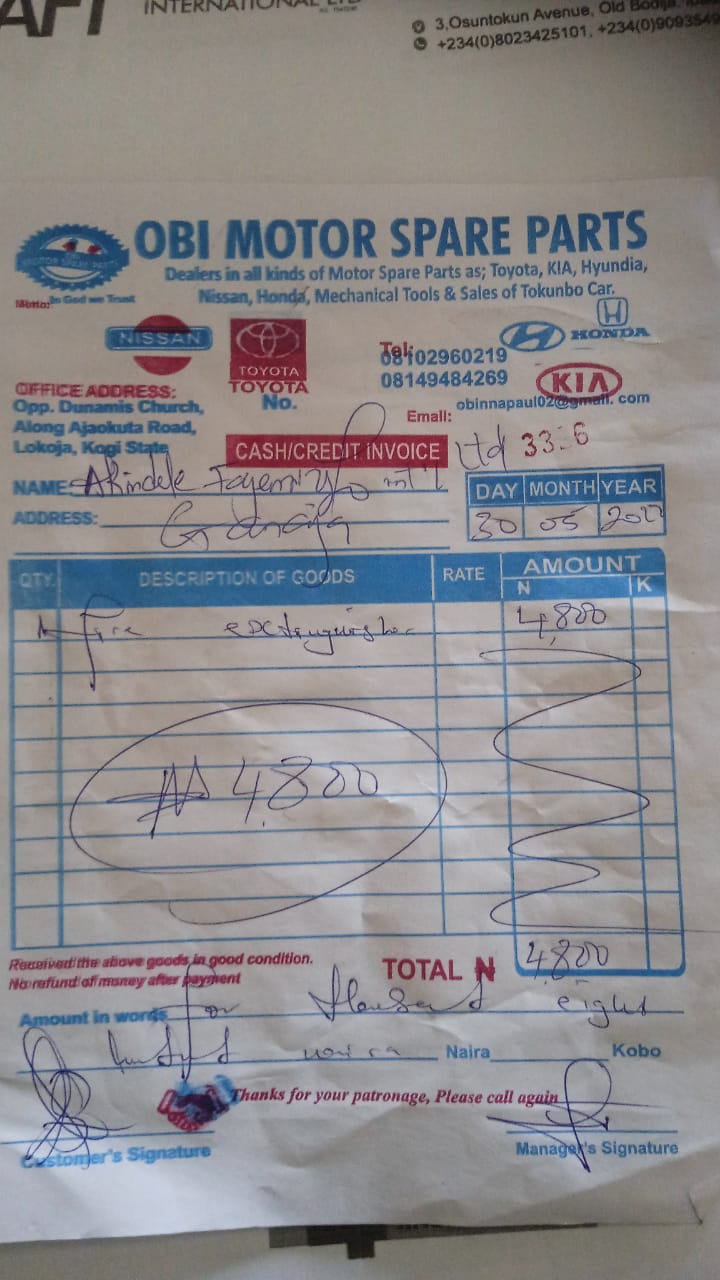 AFT INTERNATIONAL LTD
3, Osuntokun Avenue, Old Bodija,
+234(0)8023425101, +234(0)9093549
OBI MOTOR SPARE PARTS
Dealers in all kinds of Motor Spare Parts as; Toyota, KIA, Hyundia,
Nissan, Honda, Mechanical Tools & Sales of Tokunbo Car.
Motto: In God we Trust
NISSAN
TOYOTA
TOYOTA
HONDA
KIA
Tel:
08102960219
08149484269
OFFICE ADDRESS:
Opp. Dunamis Church,
Along Ajaokuta Road,
Lokoja, Kogi State
No.
Email: obinnapaul02@gmail.com
CASH/CREDIT iNVOICE
Ltd
NAME: Akindele Fayemiyo int'l
ADDRESS:
DAY MONTH YEAR
30 05 2022
QTY. DESCRIPTION OF GOODS RATE AMOUNT
N K
Fire 4,800
₦ 4,800
Received the above goods in good condition.
No refund of money after payment
TOTAL N 4,800
Amount in words For thousand eight
hundred naira Naira Kobo
Thanks for your patronage, Please call again
Customer's Signature Manager's Signature